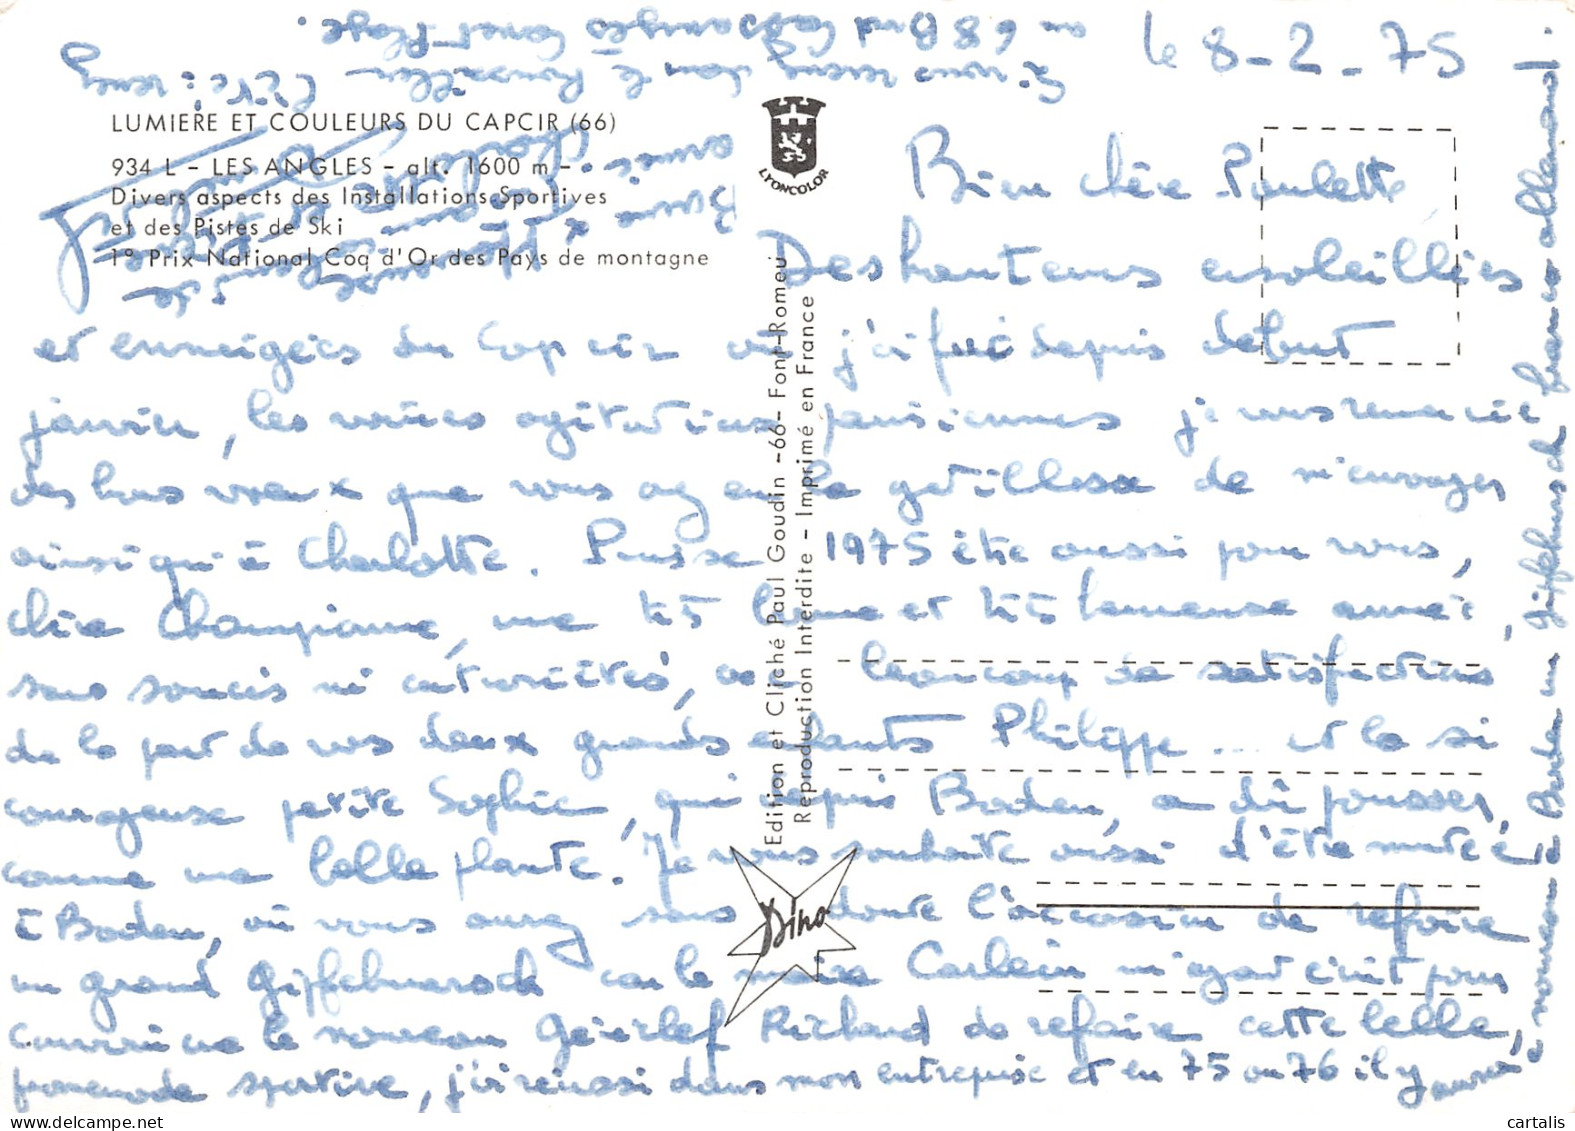 le 8-2-75
LUMIERE ET COULEURS DU CAPCIR (66)
934 L - LES ANGLES - alt. 1600 m -
Divers aspects des Installations Sportives
et des Pistes de Ski
1° Prix National Coq d'Or des Pays de montagne
LYONCOLOR
Edition et Cliché Paul Goudin -66- Font-Romeu
Reproduction Interdite - Imprimé en France
Dino
Bien chère Paulette
Des hauteurs ensoleillées
et enneigées du Capcir où j'ai fui depuis début
janvier, les vaines agitations parisiennes je vous remercie
des bons voeux que vous avez eu la gentillesse de m'envoyer
ainsi qu'à Charlotte. Puisse 1975 être aussi pour vous,
chère Championne, une très bonne et très heureuse année,
sans soucis ni inquiétudes, avec beaucoup de satisfactions
de la part de vos deux grands enfants Philippe... et la si
courageuse petite Sophie, qui depuis Baden, a dû pousser
comme une belle plante. Je vous souhaite aussi d'être mutée
à Baden, où vous aurez sans doute l'occasion de refaire
un grand Gipfelmarsch car le maire m'ayant écrit pour
convaincre le nouveau Richard de refaire cette belle
promenade sportive, j'ai réussi dans mon entreprise et en 75 ou 76 il y aura
à nouveau à Baden un Gipfelmarsch franco allemand!
Bonne année
Charlotte
Si vous venez dans le Roussillon l'été: venez
au 68 Bvd Canet-Plage.
cartalis